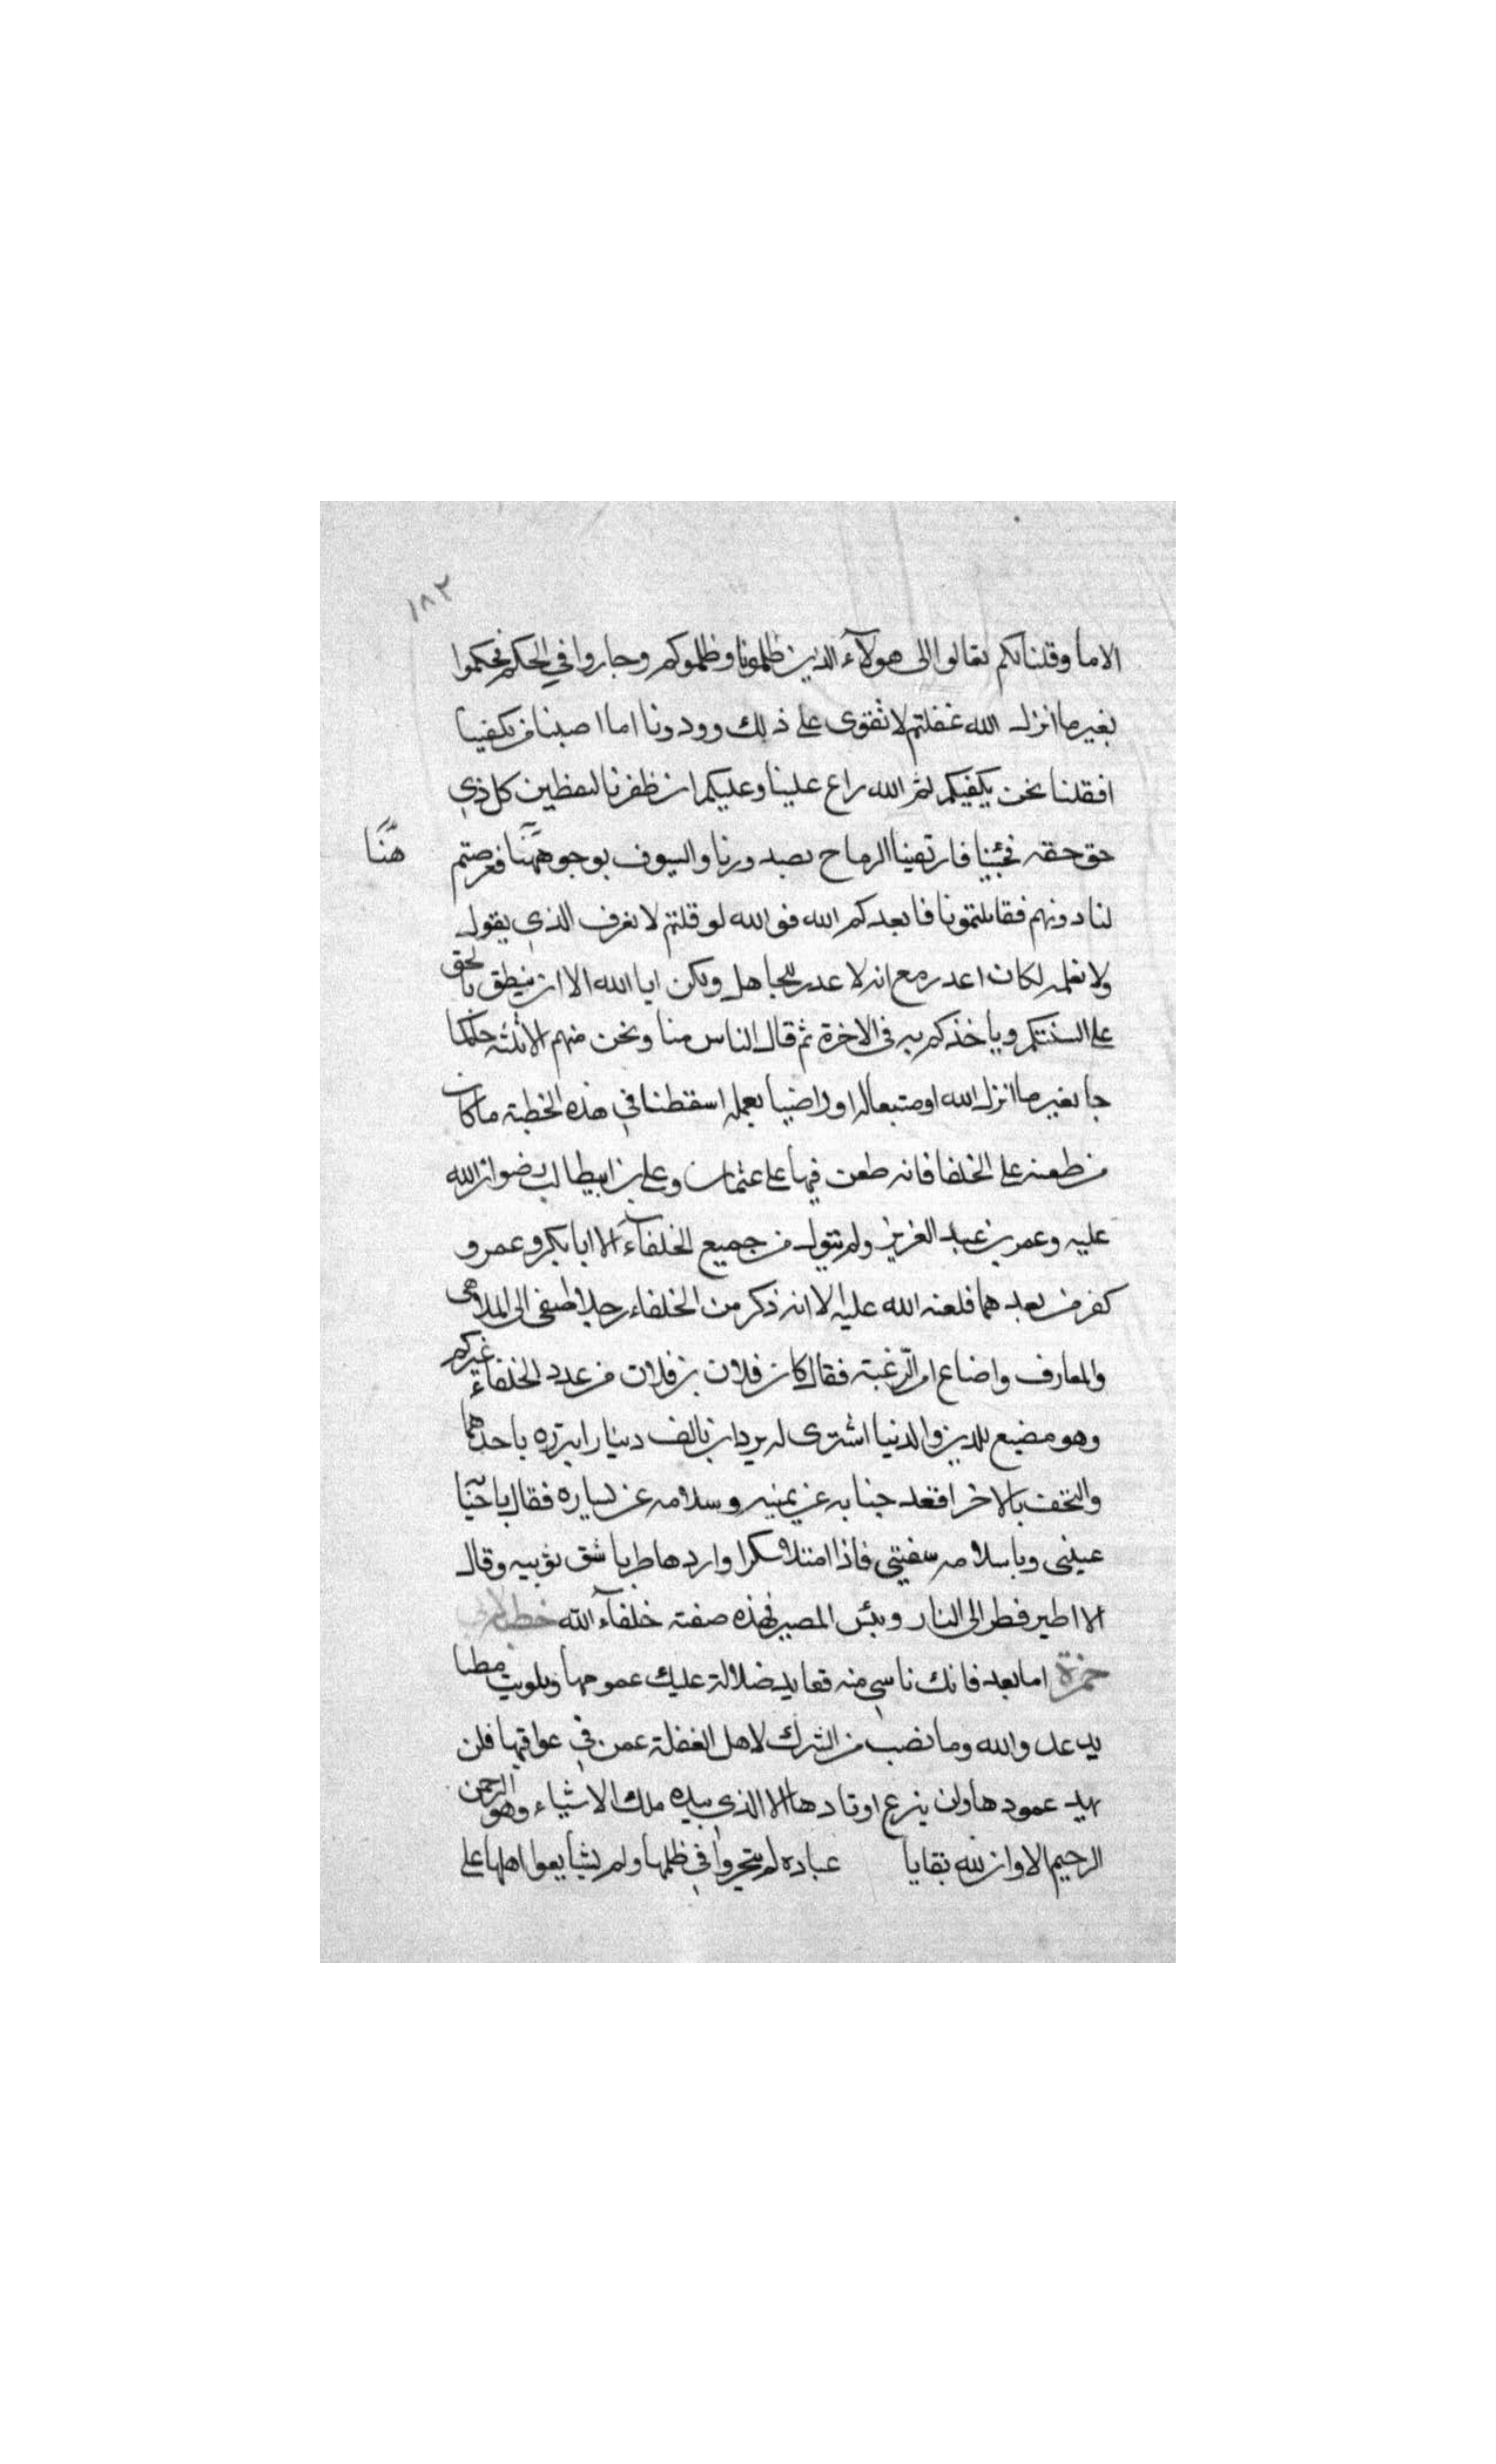 ١٨٢
الاما وقلنا لكم تعالوا الى هولآء الذين ظلمونا وظلموكم وجاروا في الحكم فحكموا
بغير ما انزل الله فقلتم لا نقوى على ذلك وودونا اما اصبنا من يكفينا
افقلنا نحن يكفيكم ثم الله راع علينا وعليكم ان ظفرنا لنعطين كل ذي
حق حقه فجئنا فاتقينا الرماح بصدورنا والسيوف بوجوهنا فعرضتم
هنا
لنا دونهم فقاتلتمونا فابعدكم الله فو الله لو قلتم لا نعرف الذي يقول
ولا نعلمه لكان اعذر مع انه لا عذر للجاهل ولكن ابا الله الا ان ينطق بالحق
على السنتكم وياخذكم به في الاخرة ثم قال الناس منا ونحن منهم الا ثلثه حاكما
جا بغير ما انزل الله او متبعا له او راضيا بعمله اسقطنا في هذه الخطبة ما كان
من طعنه على الخلفا فانه طعن فيها على عثمان وعلي بن ابيطالب رضوان الله
عليه وعمر بن عبد العزيز ولم يتول من جميع الخلفآء الا ابا بكر وعمر و
كفر من بعدهما فلعنه الله عليه الا انه ذكر من الخلفاء رجلا اصغى الى الملاهي
والمعازف واضاع امر الرغبة فقال كان فلان بن فلان من عدد الخلفاء غيركم
وهو مضيع للدين والدنيا اشترى له بردان بالف دينار اتزر باحدهما
والتحف بالاخر اقعد حبابه عن يمينه وسلامه عن يساره فقال يا حبابا
عينى ويا سلامه سقيني فاذا امتلا سكرا واردها طربا شق ثوبيه وقال
الا اطير فطر الى النار وبئس المصير فهذه صفة خلفآء الله خطبة لابي
حمزة اما بعد فانك ناسي منه فعابد ضلالة عليك عمومها وبلويت مطبا
يد عد والله وما نصب من الشرك لاهل الغفلة عمن في عواقبها فلن
يهد عمودها ولن ينزع اوتادها الا الذي بيده ملك الاشياء وهو الرحمن
الرحيم الا وان لله بقايا عباده لم يتحيروا في ظلمها ولم يشايعوا اهلها على